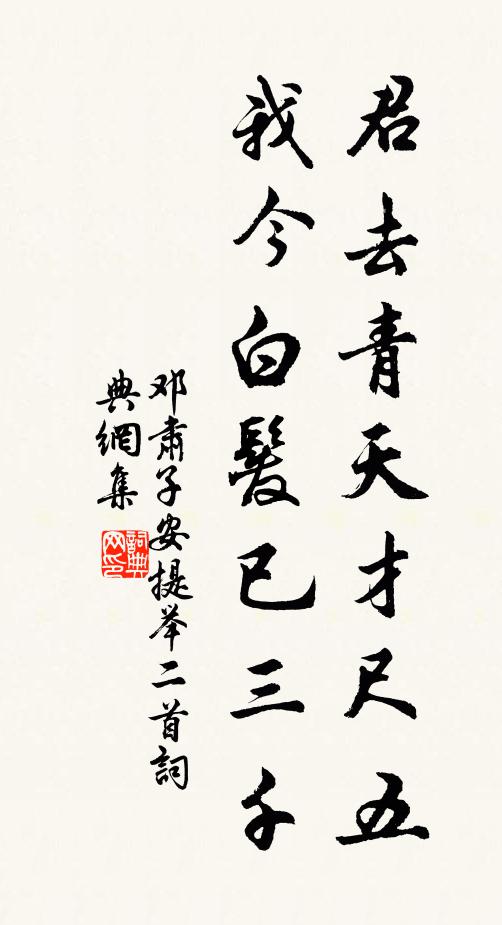 君去青天才尺五
我今白髮已三千
邓肅子安提举二首詞
典網集
詞典
网印